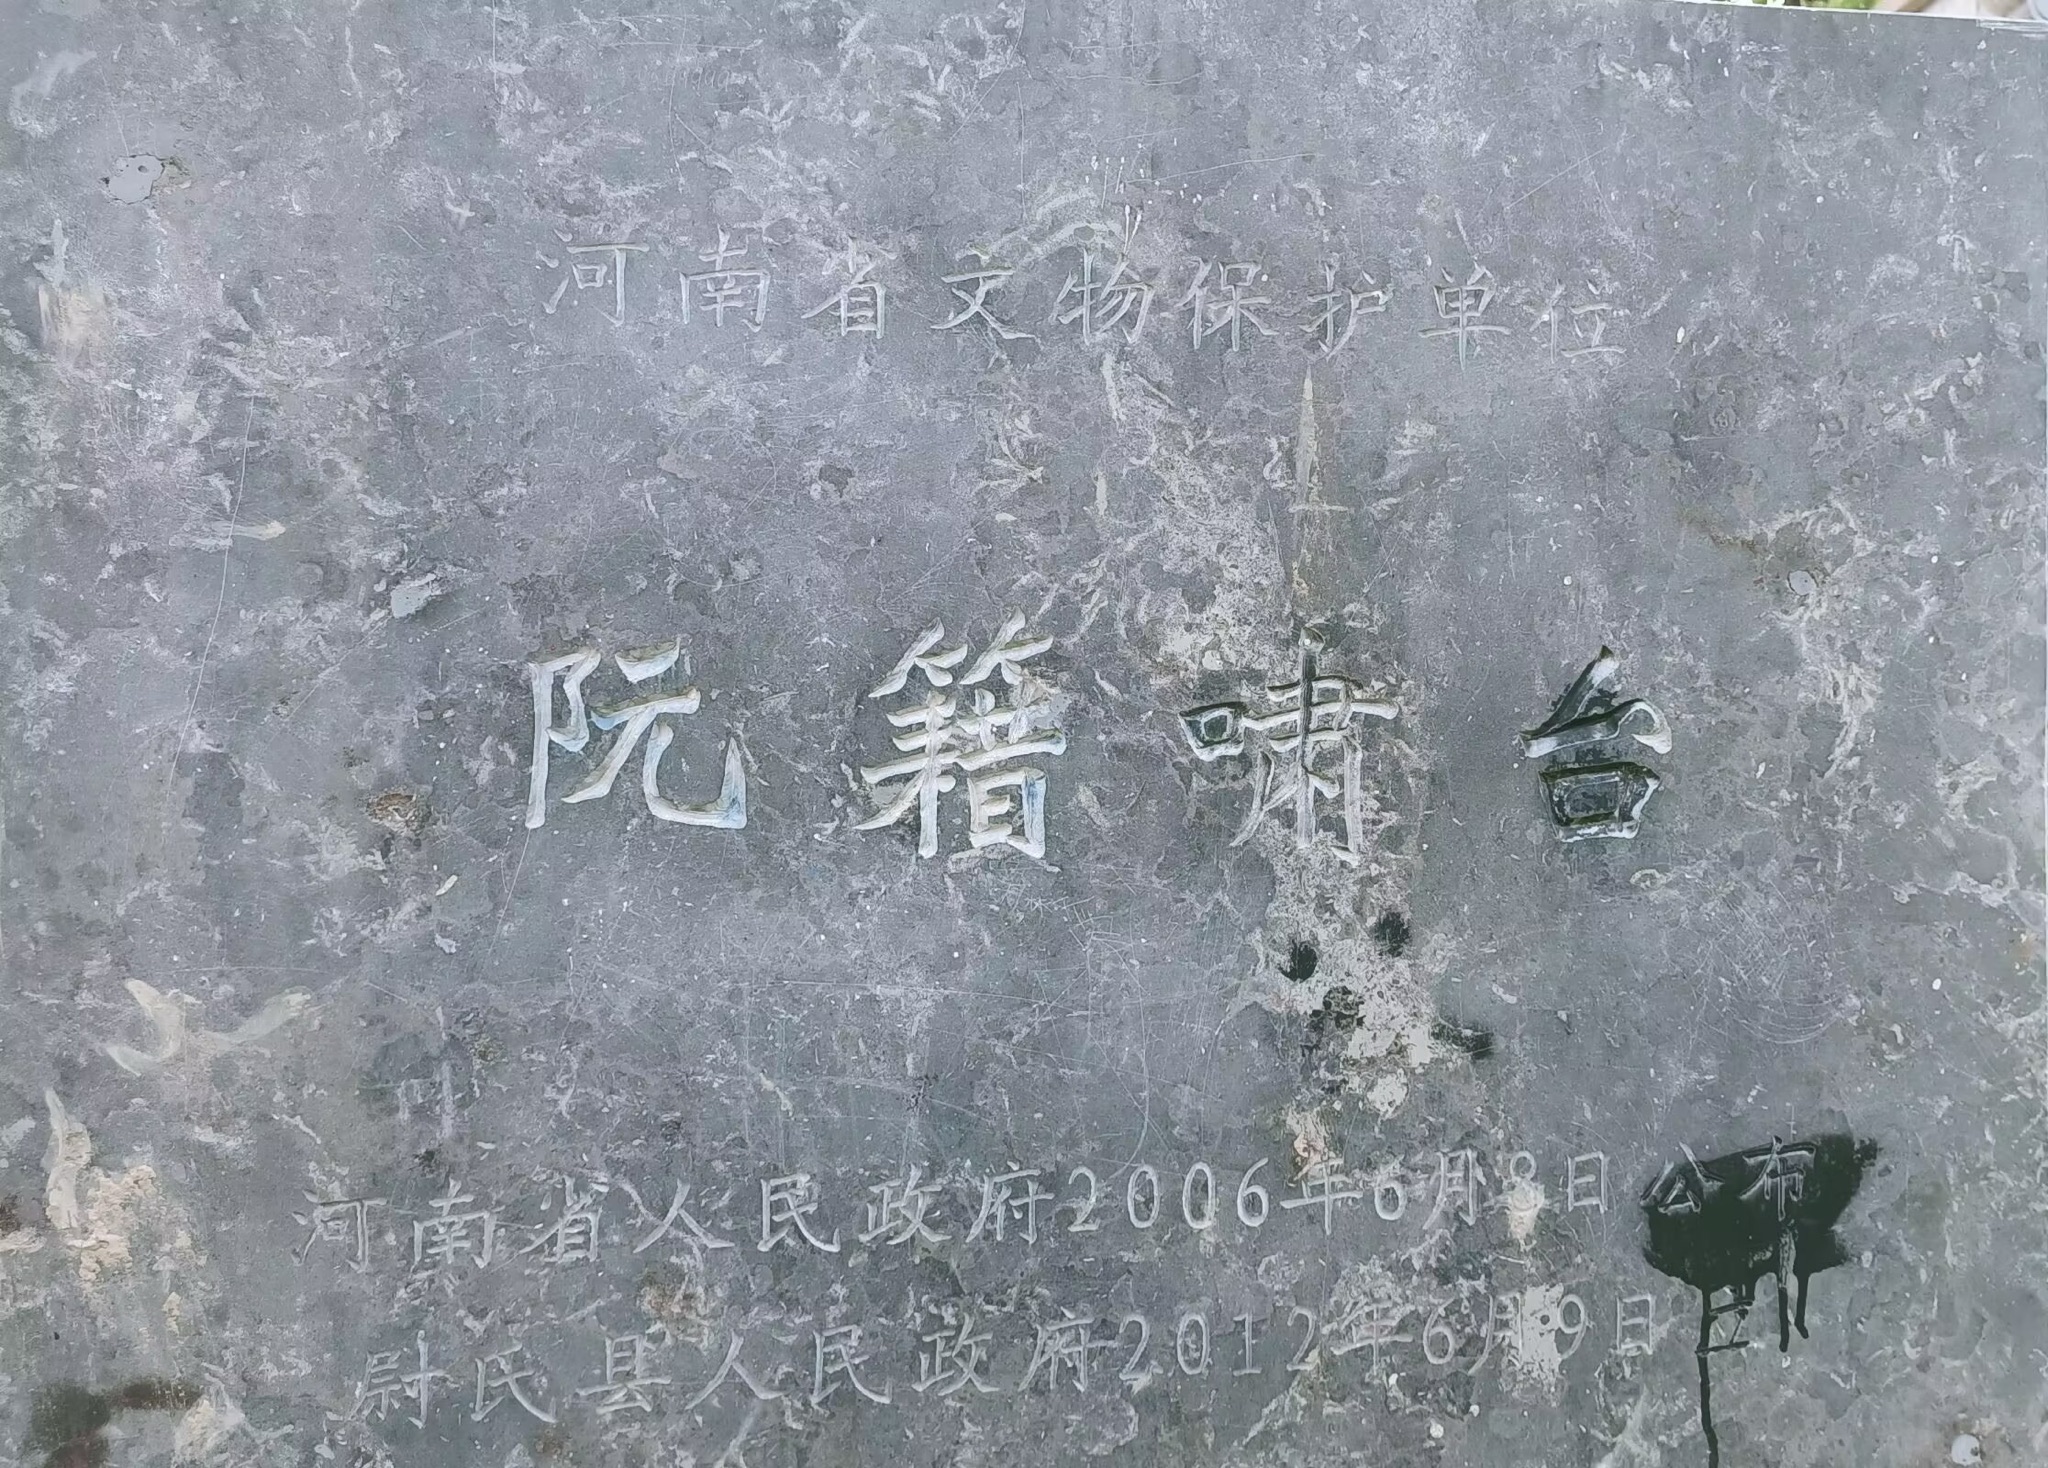 河南省文物保护单位
阮籍啸台
河南省人民政府2006年6月8日 公布
尉氏县人民政府2012年6月9日 立